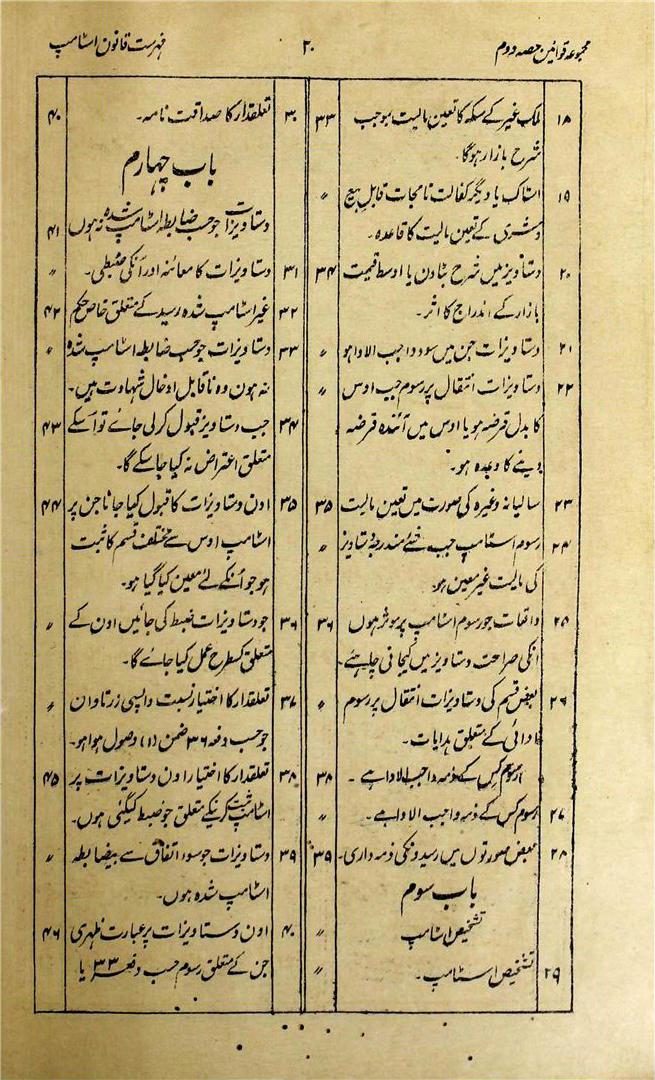 مجموعہ قوانین حصہ دوم ۲۰ فہرست قانون اسٹامپ
۱۸ ملک غیر کے سکہ کا تعین مالیت بموجب ۳۳
شرح بازار ہوگا۔
۱۹ اسٹاک یا دیگر کفالت نامجات قابل بیع 〃
وشری کے تعین مالیت کا قاعدہ۔
۲۰ دستاویز میں شرح بٹاون یا اوسط قیمت ۳۴
بازار کے اندراج کا اثر۔
۲۱ دستاویزات جن میں سود واجب الادا ہو 〃
۲۲ دستاویزات انتقال پر رسوم جب اوس 〃
کا بدل قرضہ ہو یا اوس میں آئندہ قرضہ
دینے کا وعدہ ہو۔
۲۳ سالیانہ وغیرہ کی صورت میں تعین مالیت ۳۵
۲۴ رسوم اسٹامپ جب شئے مندرجہ دستاویز 〃
کی مالیت غیر معین ہو
۲۵ واقعات جو رسوم اسٹامپ پر موثر ہوں ۳۶
انکی صراحت دستاویز میں کیجانی چاہئے۔
۲۶ بعض قسم کی دستاویزات انتقال پر رسوم 〃
ادائی کے متعلق ہدایات۔
رسوم کس کے ذمہ واجب الادا ہے۔ ۳۸
۲۷ رسوم کس کے ذمہ واجب الادا ہے۔ 〃
۲۸ بعض صورتوں میں رسید ونکی ذمہ داری۔ ۳۹
باب سوم
تشخیص اسٹامپ 〃
۲۹ تشخیص اسٹامپ۔ 〃
۳۰ تعلقدار کا صداقت نامہ۔ ۴۰
باب چہارم
دستاویزات جو حسب ضابطہ اسٹامپ شدہ نہ ہوں ۴۱
۳۱ دستاویزات کا معائنہ اور انکی ضبطی۔ 〃
۳۲ غیر اسٹامپ شدہ رسید کے متعلق خاص حکم ۴۲
۳۳ دستاویزات جو حسب ضابطہ اسٹامپ شدہ 〃
نہ ہون وہ ناقابل ادخال شہادت ہیں۔
۳۴ جب دستاویز قبول کرلی جائے تو اسکے ۴۳
متعلق اعتراض نہ کیا جا سکے گا۔
۳۵ اون دستاویزات کا قبول کیا جانا جن پر ۴۴
اسٹامپ اوس سے مختلف قسم کا ثبت
ہو جو اُنکے لئے معین کیا گیا ہو۔
۳۶ جو دستاویزات ضبط کی جائیں اون کے 〃
متعلق کسطرح عمل کیا جائے گا۔
۳۷ تعلقدار کا اختیار نسبت واپسی زر تاوان 〃
جو حسب دفعہ ۳۶ ضمن (۱) وصول ہوا ہو۔
۳۸ تعلقدار کا اختیار اون دستاویزات پر ۴۵
اسٹامپ ثبت کرنیکے متعلق جو ضبط کیگئی ہوں۔
۳۹ دستاویزات جو سوء اتفاق سے بیضابطہ 〃
اسٹامپ شدہ ہوں۔
۴۰ اون دستاویزات پر عبارت ظہری ۴۶
جن کے متعلق رسوم حسب دفعہ ۳۳ یا